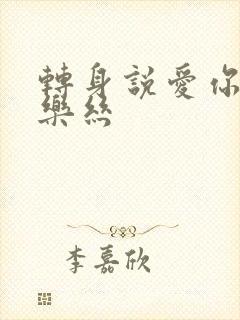 轉身說愛你
樂絲
李嘉欣